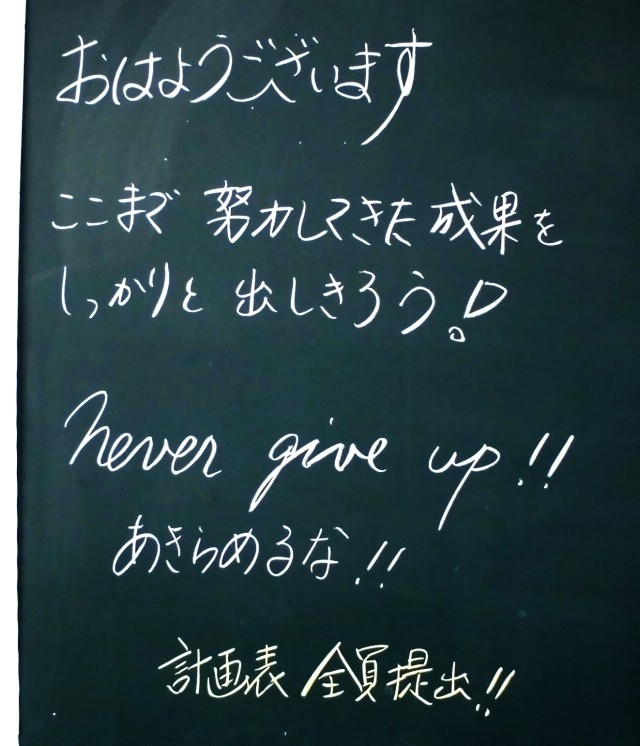 おはようございます
ここまで 努力してきた 成果を
しっかりと 出しきろう!
never give up!!
あきらめるな!!
計画表 全員提出!!